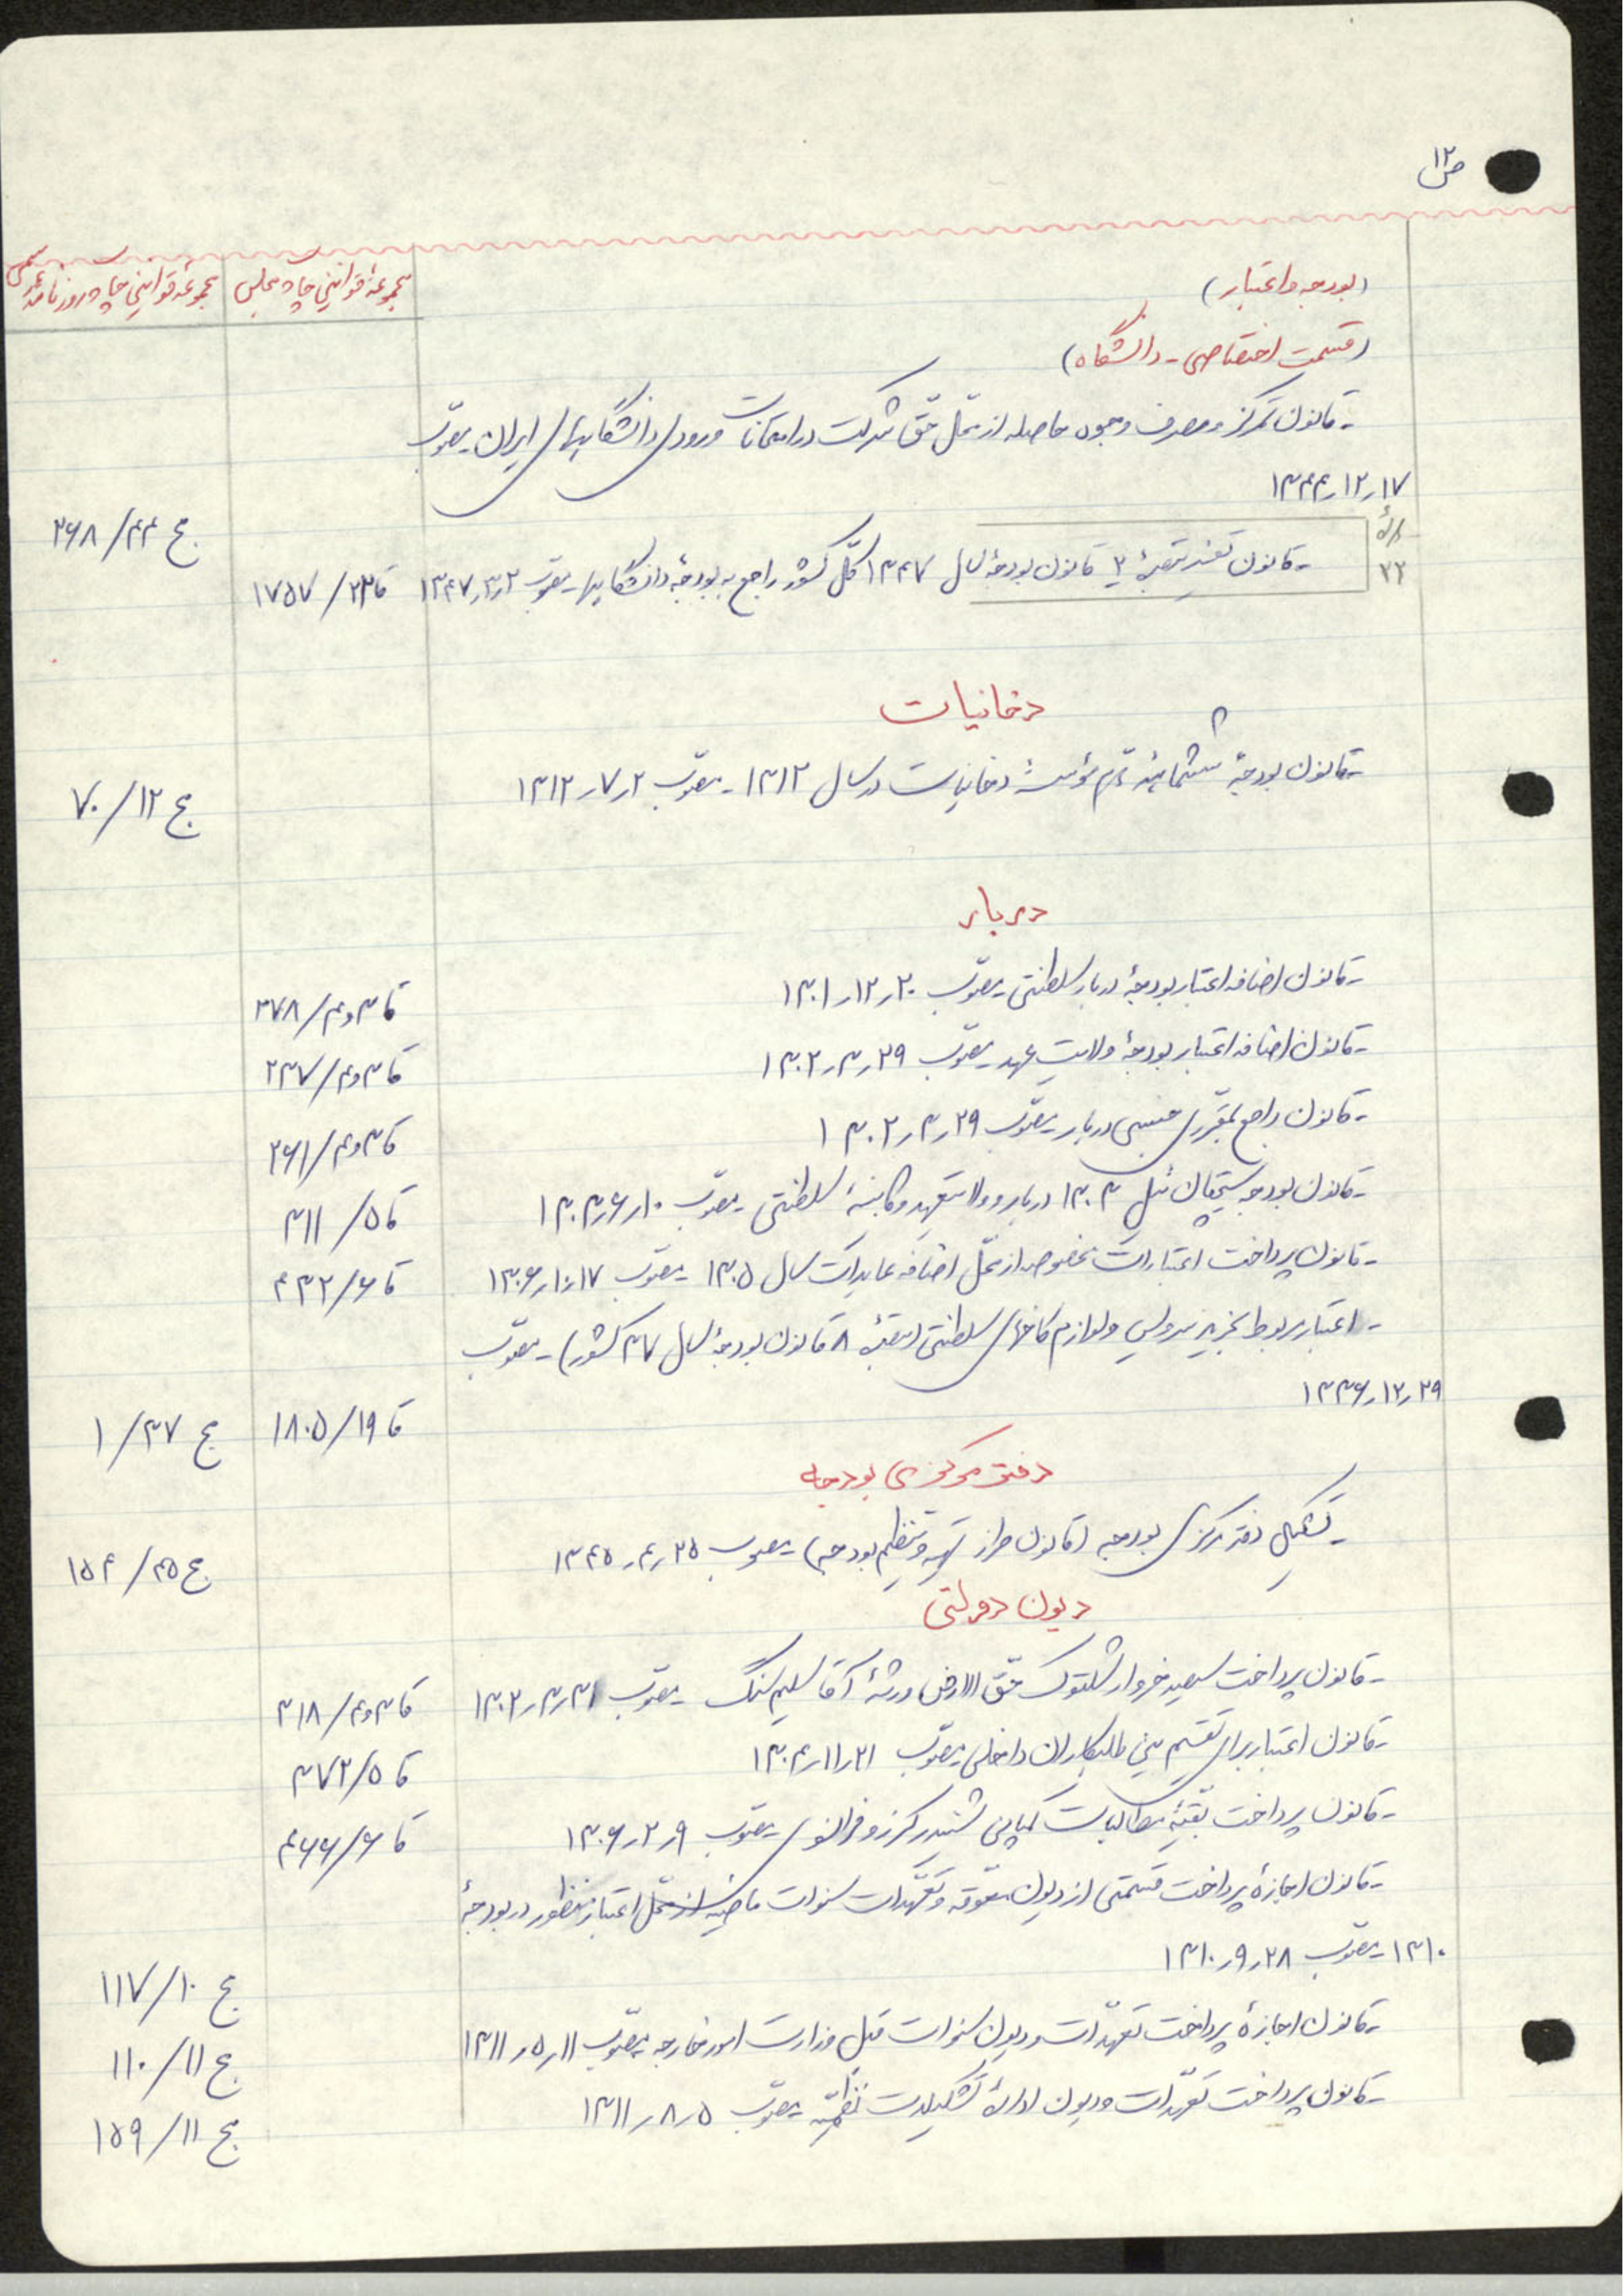 ص ۱۲
مجموعهٔ قوانین چاپ مجلس
مجموعهٔ قوانین چاپ روزنامهٔ رسمی
(بودجه و اعتبار)
(قسمت اختصاصی - دانشگاه)
- قانون تمرکز و مصرف وجوه حاصله از محلّ حقّ شرکت در امتحانات ورودی دانشگاههای ایران - مصوّب
۱۳۴۴ر۱۲ر۱۷
ج ۴۴/ ۲۶۸
- قانون تفسیر تبصرهٔ ۲ قانون بودجهٔ سال ۱۳۴۷ کلّ کشور راجع به بودجهٔ دانشگاهها - مصوّب ۱۳۴۷ر۳ر۲ قا ۲۲/ ۱۷۵۷
۲۲
دخانیات
- قانون بودجهٔ ششماههٔ دوّم مؤسسهٔ دخانیات در سال ۱۳۱۲ - مصوّب ۱۳۱۲ر۷ر۲
ج ۱۲/ ۷۰
دربار
- قانون اضافه اعتبار بودجهٔ دربار سلطنتی - مصوّب ۱۳۰۱ر۱۲ر۲۰ قا ۳و۴/ ۲۷۸
- قانون اضافه اعتبار بودجهٔ ولایت عهد - مصوّب ۱۳۰۲ر۳ر۲۹ قا ۳و۴/ ۲۳۷
- قانون راجع بمقرّری جنسی دربار - مصوّب ۱۳۰۲ر۳ر۲۹ قا ۳و۴/ ۲۶۱
- قانون بودجه سیچقان ئیل ۱۳۰۳ دربار و ولایتعهد و کابینهٔ سلطنتی - مصوّب ۱۳۰۳ر۶ر۱۰ قا ۵/ ۳۱۱
- قانون پرداخت اعتبارات مخصوصه از محلّ اضافه عایدات سال ۱۳۰۵ - مصوّب ۱۳۰۶ر۱۰ر۱۷ قا ۶/ ۴۳۲
- اعتبار مربوط بخرید سرویس و لوازم کاخهای سلطنتی (تبصرهٔ ۸ قانون بودجهٔ سال ۳۷ کشور) - مصوّب
۱۳۳۶ر۱۲ر۲۹
قا ۱۹/ ۱۸۰۵ ج ۳۷/ ۱
دفتر مرکزی بودجه
- تشکیل دفتر مرکزی بودجه (قانون طرز تهیه و تنظیم بودجه) - مصوب ۱۳۴۵ر۴ر۲۵ ج ۴۵/ ۱۵۴
دیون دولتی
- قانون پرداخت سیصد خروار شلتوک حقّ الارض ورثهٔ آقا سلیم سنگ - مصوّب ۱۳۰۲ر۳ر۳۱ قا ۳و۴/ ۳۱۸
- قانون اعتبار برای تقسیم بین طلبکاران داخلی - مصوّب ۱۳۰۴ر۱۱ر۲۱ قا ۵/ ۳۷۲
- قانون پرداخت بقیّهٔ مطالبات کمپانی شنیدر کرزو فرانسوی - مصوّب ۱۳۰۶ر۲ر۹ قا ۶/ ۴۶۶
- قانون اجازهٔ پرداخت قسمتی از دیون معوّقه و تعهّدات سنوات ماضیه از محلّ اعتبار منظور در بودجهٔ
۱۳۱۰ - مصوّب ۱۳۱۰ر۹ر۲۸
ج ۱۰/ ۱۱۷
- قانون اجازهٔ پرداخت تعهّدات و دیون سنوات قبل وزارت امور خارجه - مصوّب ۱۳۱۱ر۵ر۱۱ ج ۱۱/ ۱۱۰
- قانون پرداخت تعهّدات و دیون ادارهٔ تشکیلات نظمیّه - مصوّب ۱۳۱۱ر۸ر۵ ج ۱۱/ ۱۵۹